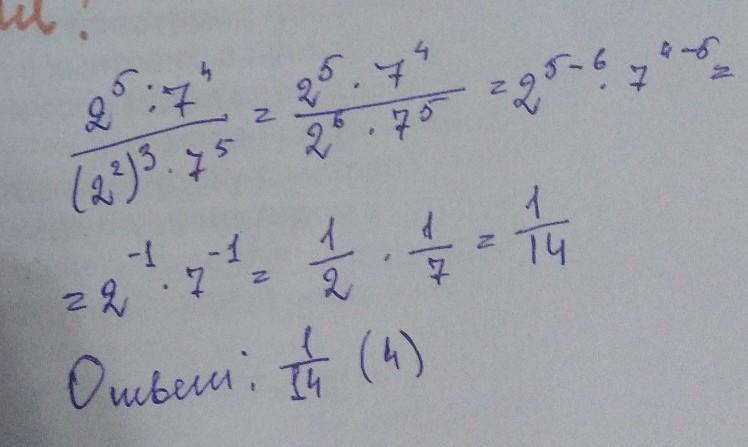 2⁵ : 7⁴ / (2²)³ · 7⁵ = 2⁵ · 7⁴ / 2⁶ · 7⁵ = 2⁵⁻⁶ · 7⁴⁻⁵ =
= 2⁻¹ · 7⁻¹ = 1/2 · 1/7 = 1/14
Ответ: 1/14 (4)